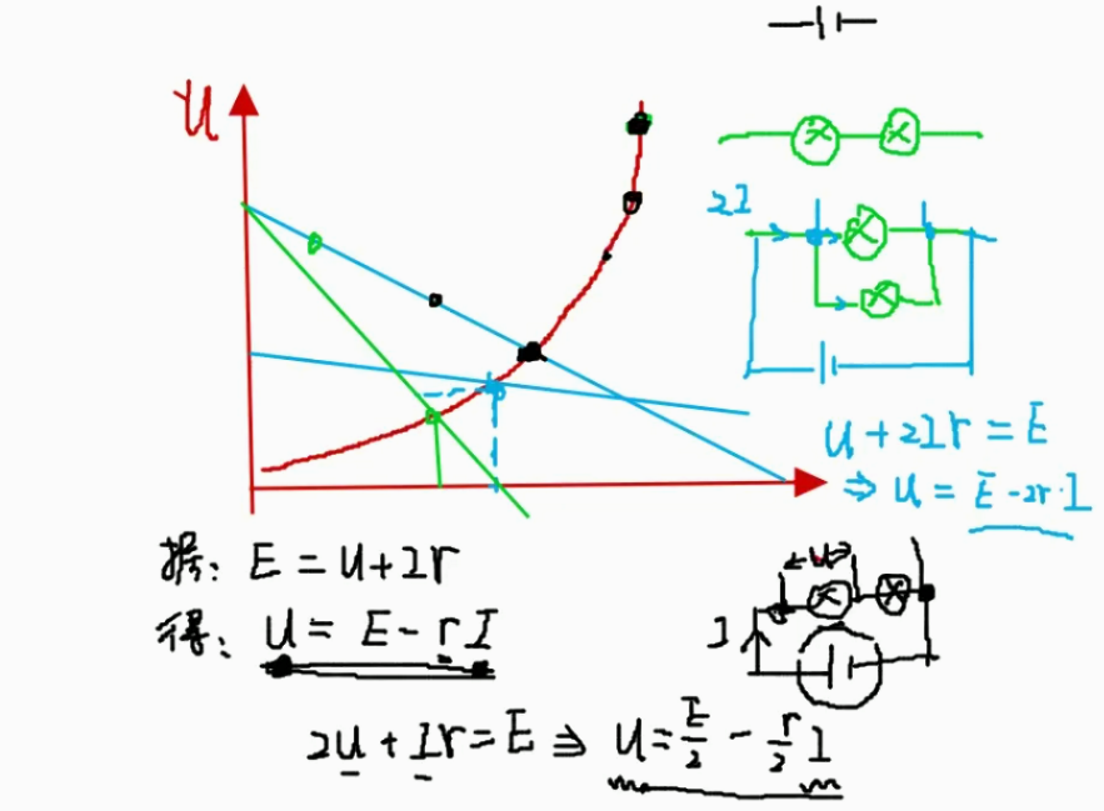 U
2I
U + 2Ir = E
⇒ U = E - 2r·I
据: E = U + Ir
得: U = E - rI
U
I
2U + Ir = E ⇒ U = E/2 - r/2 I